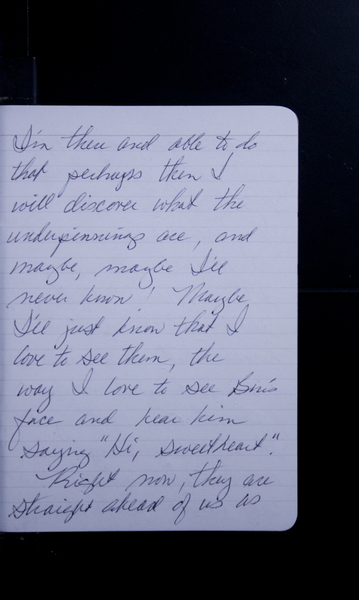 I'm there and able to do
that perhaps then I
will discover what the
underpinnings are, and
maybe, maybe I'll
never know! Maybe
I'll just know that I
love to see them, the
way I love to see
face and hear him
saying "Hi, sweetheart".
Right now, they are
straight ahead of us as